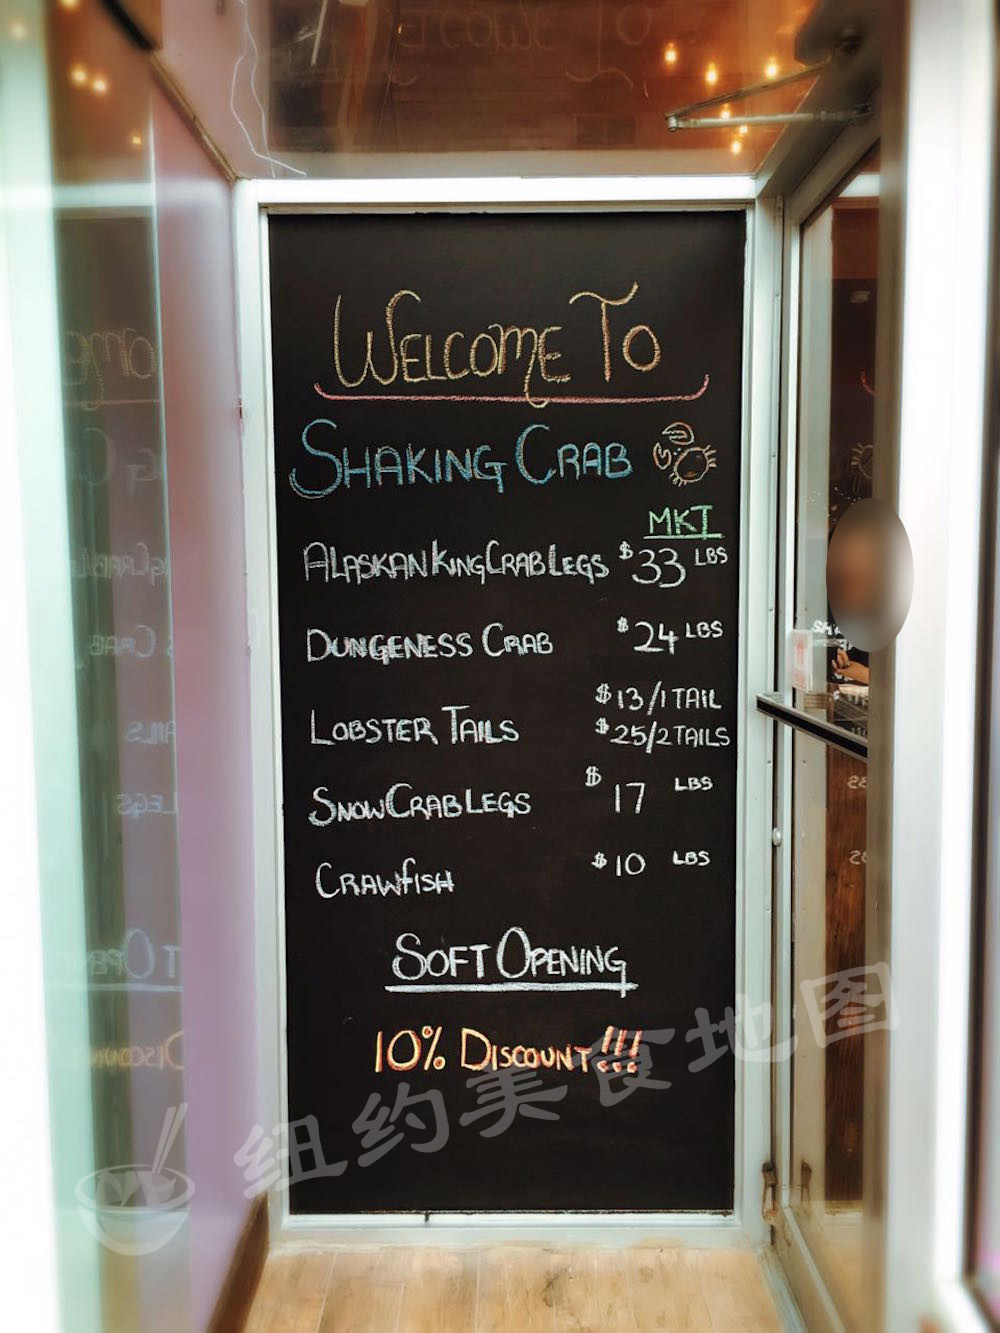 WELCOME TO
SHAKING CRAB
MKT
ALASKAN KING CRAB LEGS $33 LBS
DUNGENESS CRAB $24 LBS
LOBSTER TAILS $13/1 TAIL
$25/2 TAILS
SNOW CRAB LEGS $17 LBS
CRAWFISH $10 LBS
SOFT OPENING
10% DISCOUNT!!!
纽约美食地图